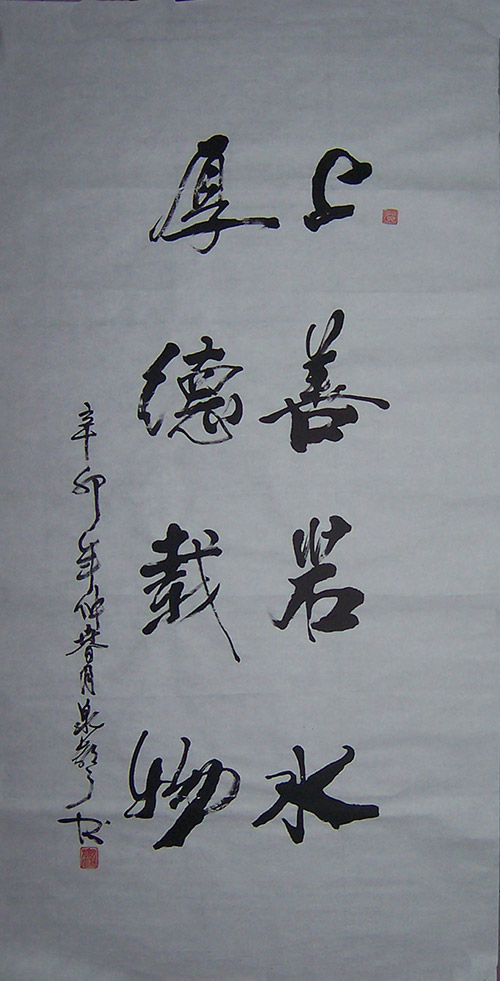 上善若水
厚德载物
辛卯年仲春月
书